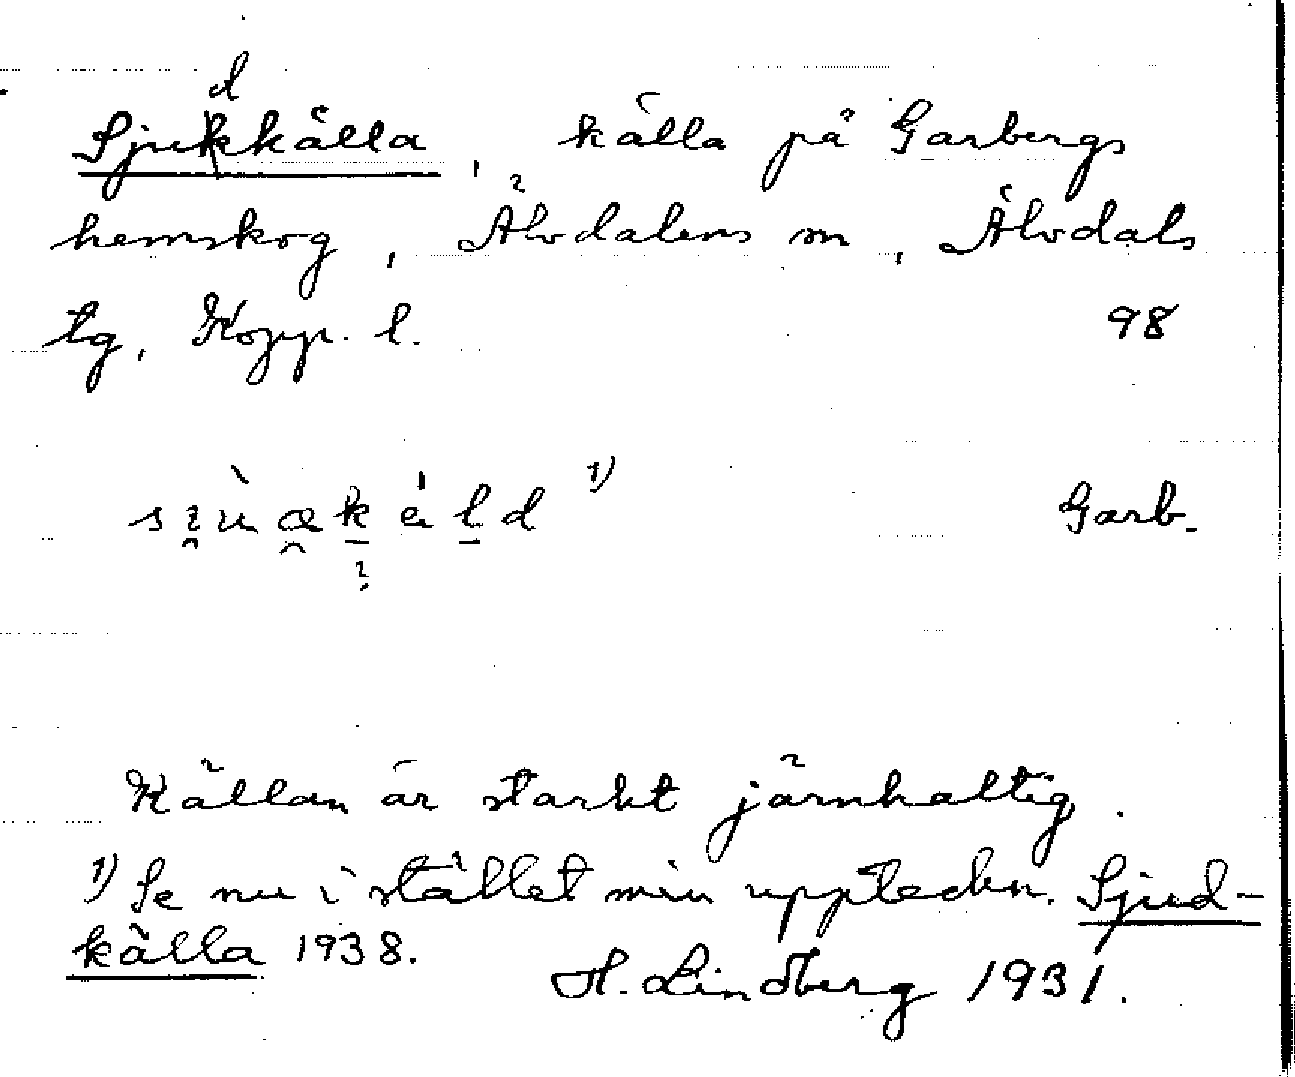 Sjudkälla, källa på Garbergs
hemskog, Älvdalens sn, Älvdals
tg, Kopp. l. 98
Garb.
Källan är starkt järnhaltig.
1) Se nu i stället min uppteckn. Sjud-
källa 1938.
H. Lindberg 1931.